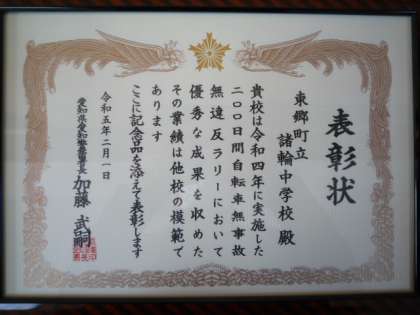 表彰状
東郷町立
諸輪中学校 殿
貴校は令和四年に実施した
二〇〇日間自転車無事故
無違反ラリーにおいて
優秀な成果を収めた
その業績は他校の模範で
あります
ここに記念品を添えて表彰します
令和五年二月一日
愛知県愛知警察署長 加藤 武嗣